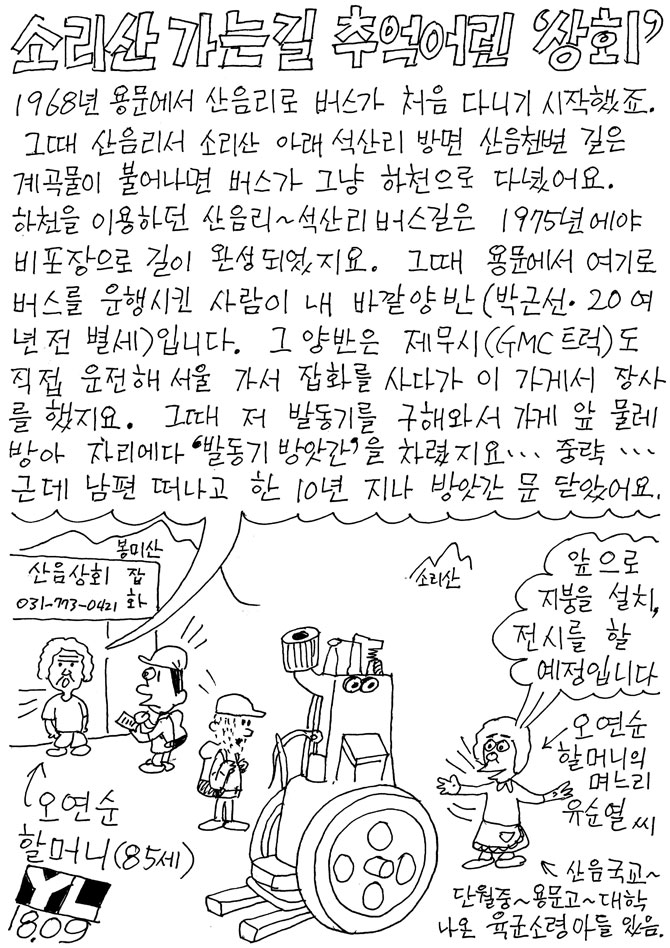 소리산 가는길 추억어린 '쌍회'
1968년 용문에서 산음리로 버스가 처음 다니기 시작했죠.
그때 산음리서 소리산 아래 석산리 방면 산음천변 길은
계곡물이 불어나면 버스가 그냥 하천으로 다녔어요.
하천을 이용하던 산음리~석산리 버스길은 1975년에야
비포장으로 길이 완성되었지요. 그때 용문에서 여기로
버스를 운행시킨 사람이 내 바깥양반(박근선·20여
년 전 별세)입니다. 그 양반은 제무시(GMC트럭)도
직접 운전해 서울 가서 잡화를 사다가 이 가게서 장사
를 했지요. 그때 저 발동기를 구해와서 가게 앞 물레
방아 자리에다 '발동기 방앗간'을 차렸지요… 중략 …
근데 남편 떠나고 한 10년 지나 방앗간 문 닫았어요.
봉미산
산음상회 잡화
031-773-0421
소리산
앞으로
지붕을 설치,
전시를 할
예정입니다
오연순
할머니(85세)
오연순
할머니의
며느리
유순열씨
산음국교~
단월중~용문고~대학
나온 육군소령 아들 있음.
YL
18.09